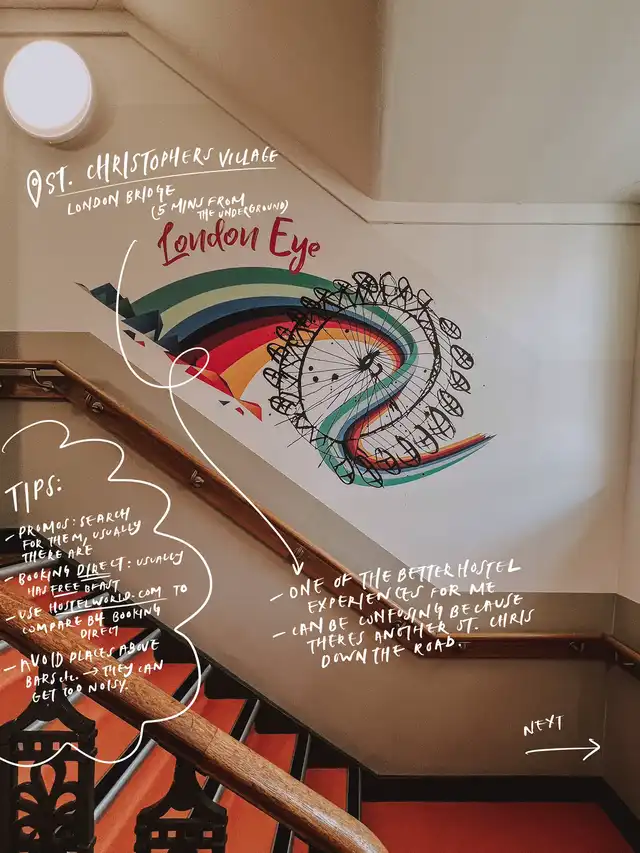 ST. CHRISTOPHERS VILLAGE
LONDON BRIDGE
(5 MINS FROM
THE UNDERGROUND)
London Eye
TIPS:
- PROMOS: SEARCH
FOR THEM, USUALLY
THERE ARE
- BOOKING DIRECT: USUALLY
HAS FREE BFAST
- USE HOSTELWORLD.COM TO
COMPARE B4 BOOKING
DIRECT
- AVOID PLACES ABOVE
BARS etc. → THEY CAN
GET TOO NOISY.
- ONE OF THE BETTER HOSTEL
EXPERIENCES FOR ME
- CAN BE CONFUSING BECAUSE
THERES ANOTHER ST. CHRIS
DOWN THE ROAD.
NEXT